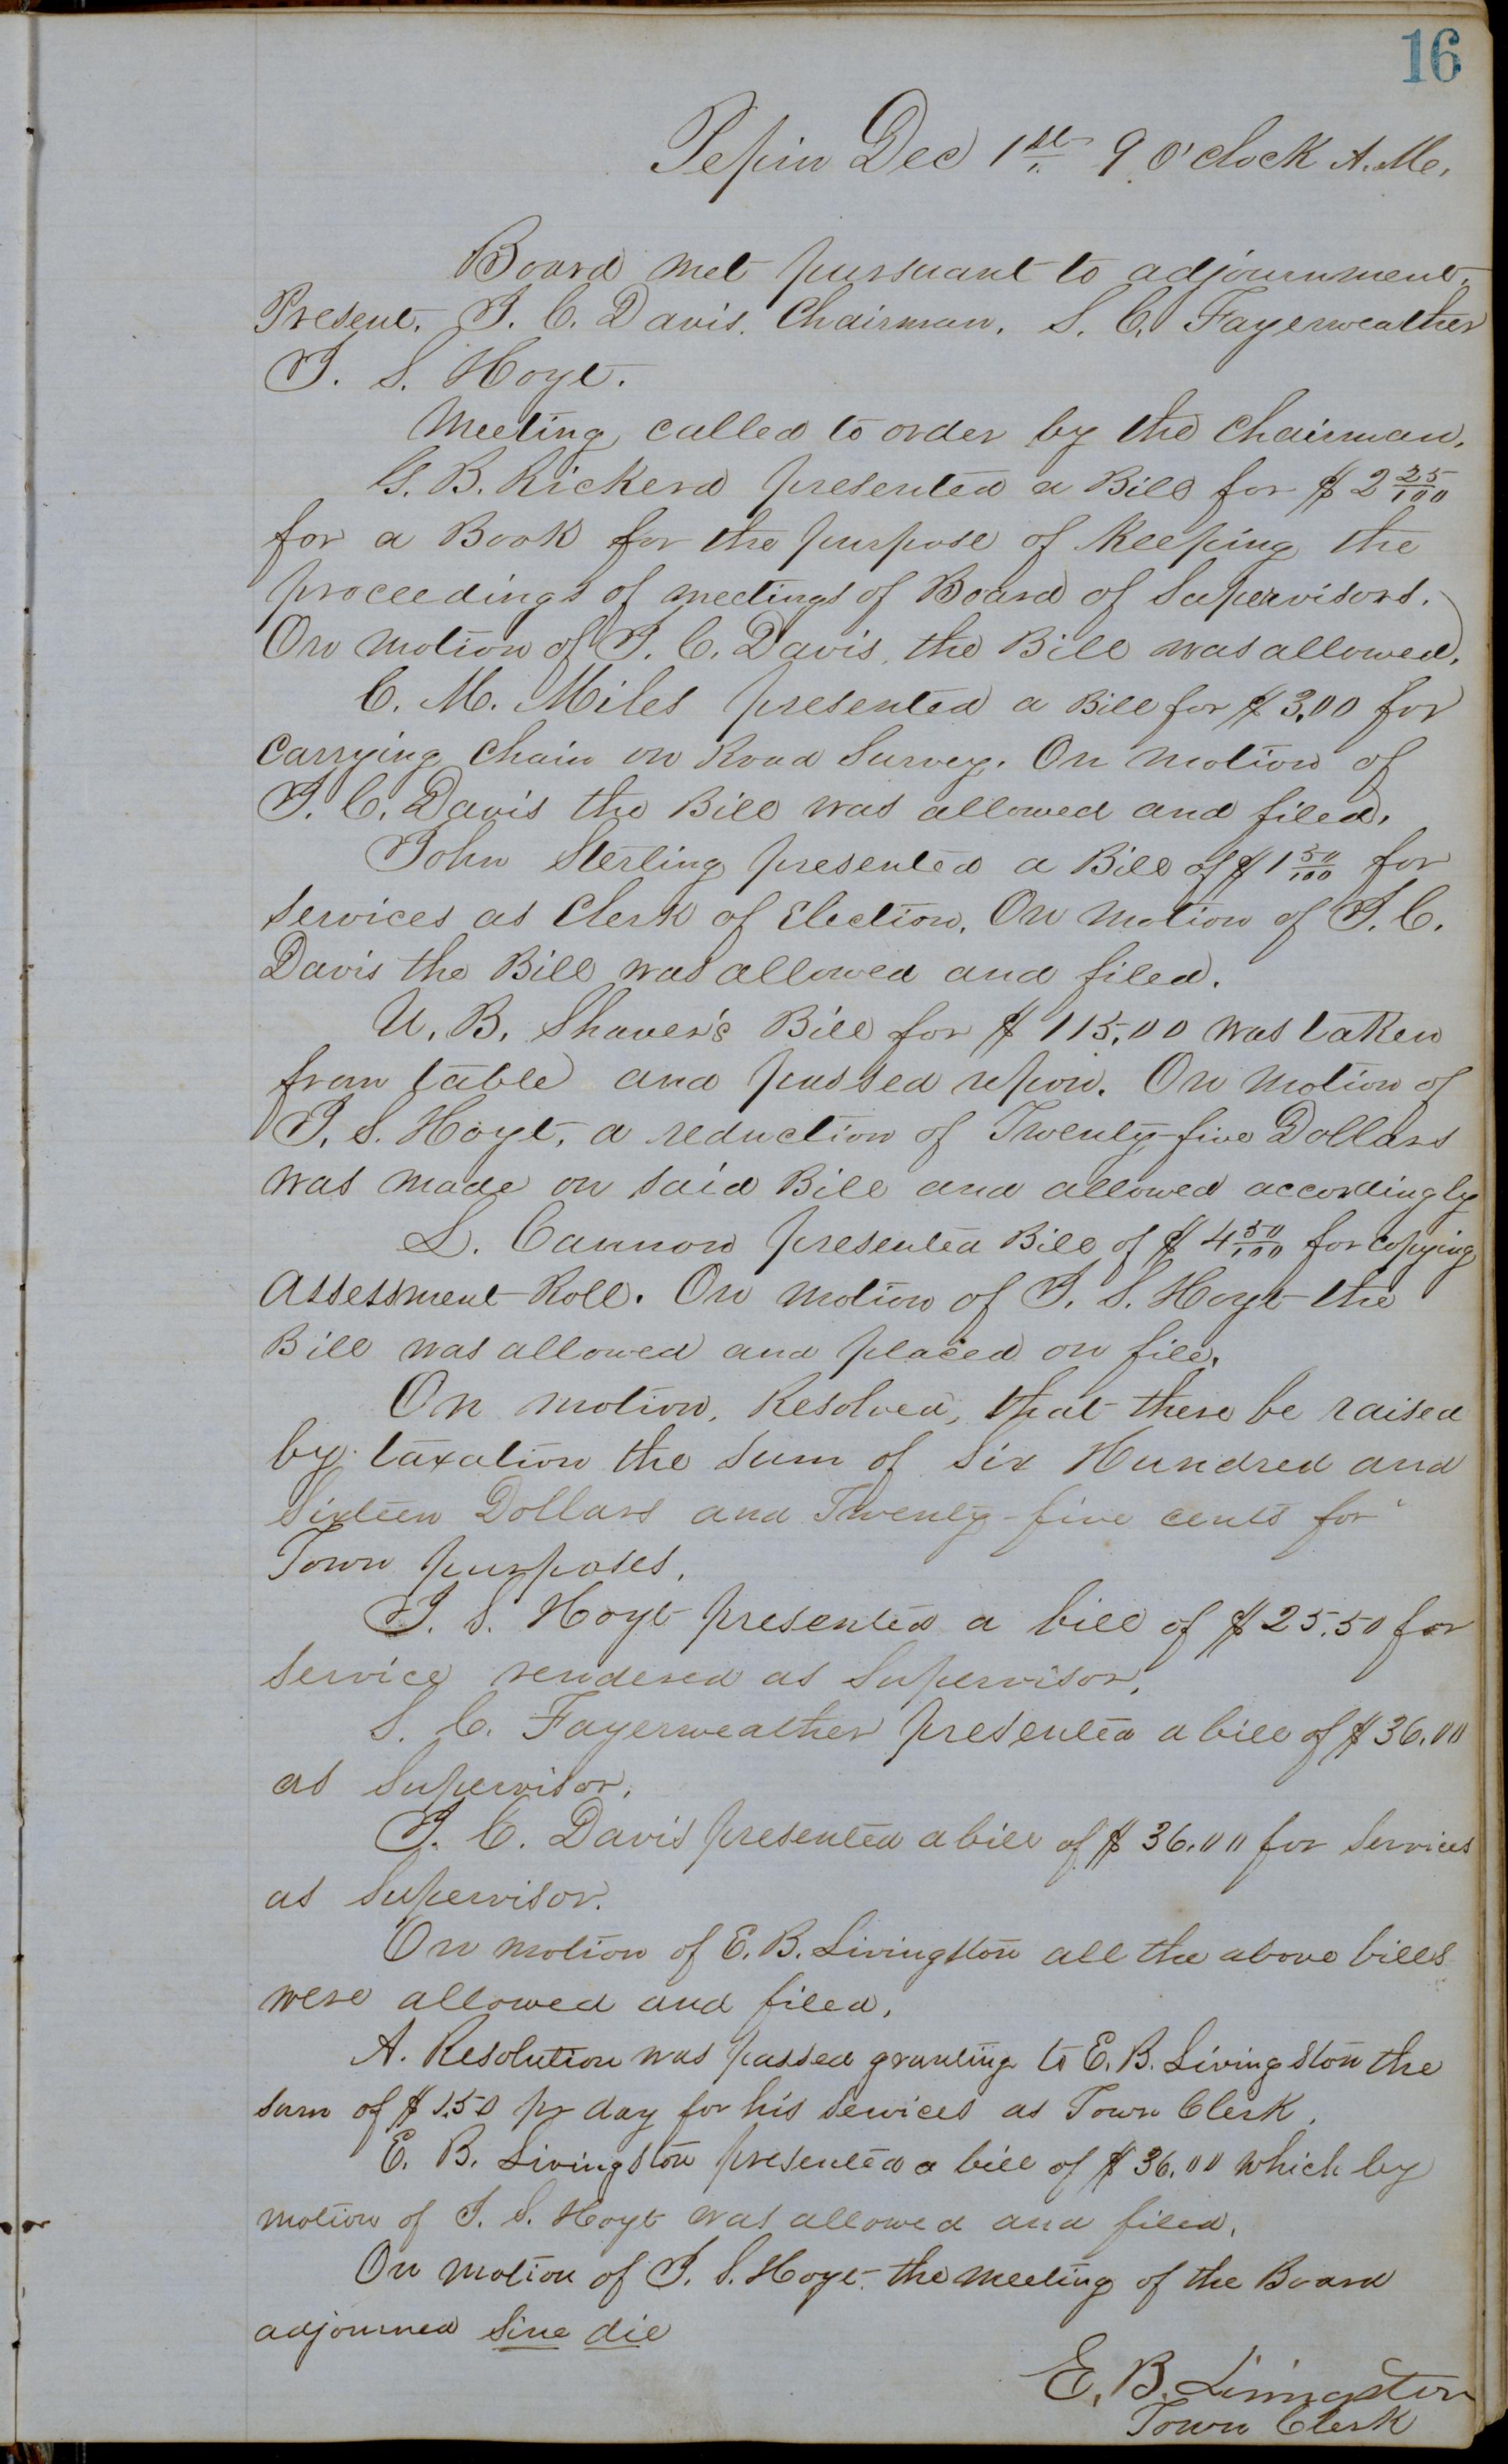 16
Pepin Dec 1st 9 O'clock A.M.
Board met pursuant to adjournment.
Present. J. C. Davis. Chairman. S. C. Fayerweather
J. S. Hoyt.
Meeting called to order by the Chairman.
G. B. Rickerd presented a Bill for $ 2 25/100
for a Book for the purpose of Keeping the
proceedings of meetings of Board of Supervisors.
On motion of J. C. Davis, the Bill was allowed.
C. M. Miles presented a Bill for $ 3.00 for
Carrying Chain on Road Survey. On motion of
J. C. Davis the Bill was allowed and filed.
John Sterling presented a Bill of $ 1 50/100 for
services as Clerk of Election. On motion of J. C.
Davis the Bill was allowed and filed.
U. B. Shaver's Bill for $ 115.00 was taken
from table and passed upon. On motion of
J. S. Hoyt, a reduction of Twenty-five Dollars
was made on said Bill and allowed accordingly
L. Cannon presented Bill of $ 4 50/100 for copying
Assessment Roll. On motion of J. S. Hoyt the
Bill was allowed and placed on file.
On motion, Resolved, that there be raised
by taxation the sum of Six Hundred and
Sixteen Dollars and Twenty-five cents for
Town purposes.
J. S. Hoyt presented a bill of $ 25.50 for
service rendered as Supervisor.
S. C. Fayerweather presented a bill of $ 36.00
as Supervisor.
J. C. Davis presented a bill of $ 36.00 for services
as Supervisor.
On motion of E. B. Livingston all the above bills
were allowed and filed.
A. Resolution was passed granting to E. B. Livingston the
sum of $ 1.50 pr day for his services as Town Clerk.
E. B. Livingston presented a bill of $ 36.00 which by
motion of J. S. Hoyt was allowed and filed.
On motion of J. S. Hoyt. the meeting of the Board
adjourned Sine die
E. B. Livingston
Town Clerk